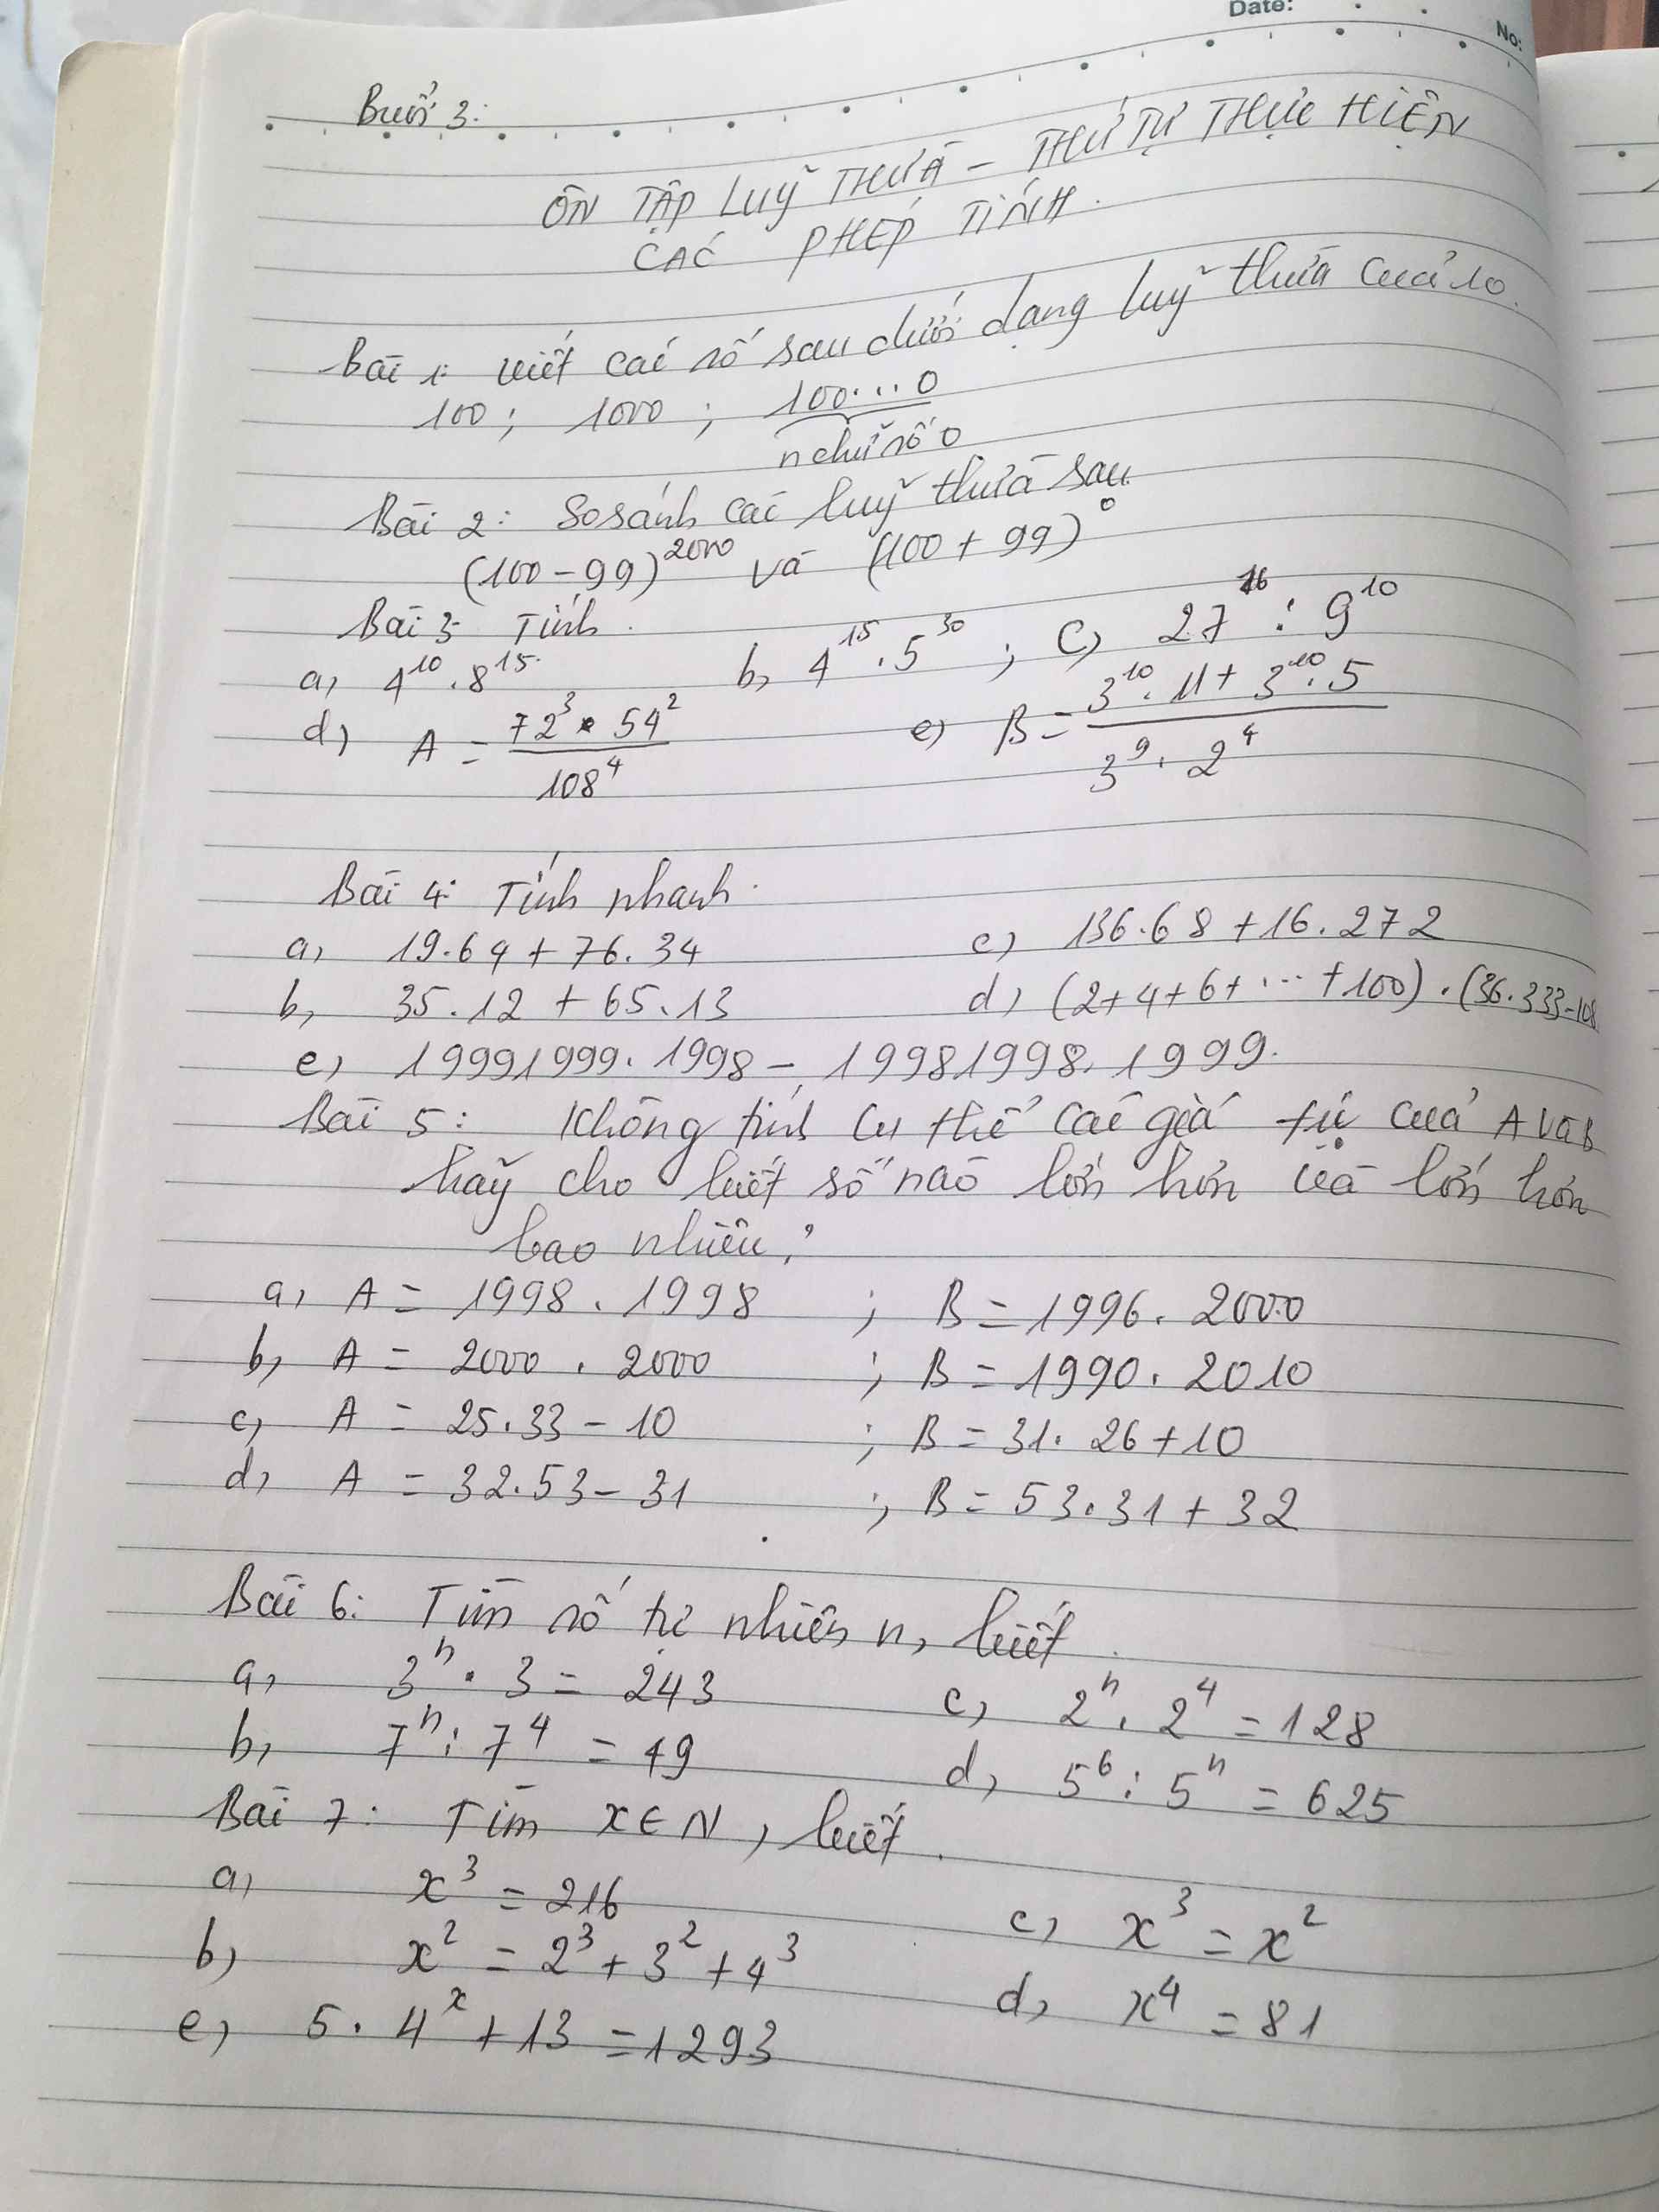 Date:
No:
Buổi 3:
ÔN TẬP LUỸ THỪA – THỨ TỰ THỰC HIỆN
CÁC PHÉP TÍNH.
Bài 1: viết các số sau dưới dạng luỹ thừa của 10.
100 ; 1000 ; 100...0
n chữ số 0
Bài 2: So sánh các luỹ thừa sau
(100 - 99)^2000 và (100 + 99)^0
Bài 3: Tính.
a, 4^10 . 8^15. b, 4^15 . 5^30 ; c, 27^16 : 9^10
d) A = (72^3 . 54^2)/108^4 e) B = (3^10 . 11 + 3^10 . 5)/(3^9 . 2^4)
Bài 4: Tính nhanh.
a, 19.64 + 76.34 c) 136.68 + 16.272
b, 35.12 + 65.13 d) (2+4+6+...+100) . (36.333-108
e) 19991999. 1998 – 19981998. 1999.
Bài 5: Không tính cụ thể các giá trị của A và B
hãy cho biết số nào lớn hơn và lớn hơn
bao nhiêu?
a, A = 1998 . 1998 ; B = 1996. 2000
b, A = 2000 . 2000 ; B = 1990. 2010
c, A = 25.33 - 10 ; B = 31. 26 + 10
d, A = 32.53 - 31 ; B = 53.31 + 32
Bài 6: Tìm số tự nhiên n, biết.
a, 3^n . 3 = 243 c, 2^n . 2^4 = 128
b, 7^n : 7^4 = 49 d, 5^6 : 5^n = 625
Bài 7: Tìm x ∈ N, biết.
a, x^3 = 216 c, x^3 = x^2
b) x^2 = 2^3 + 3^2 + 4^3 d, x^4 = 81
e) 5. 4^x + 13 = 1293